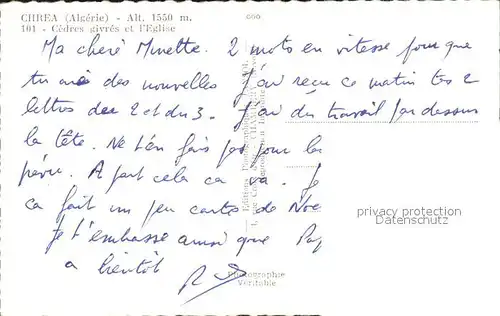 CHREA (Algérie) - Alt. 1550 m.
101 - Cèdres givrés et l'Eglise
Ma chère Minette. 2 mots en vitesse pour que
tu aies des nouvelles. J'ai reçu ce matin tes 2
lettres du 2 et du 3. J'ai du travail par dessus
la tête. Ne t'en fais pas pour la
A part cela ca va. Je
ca fait un peu cartes de Noe
Je t'embrasse ainsi que Pap
a bientôt
privacy protection
Datenschutz
Editions Photographiques
Photographie
Véritable